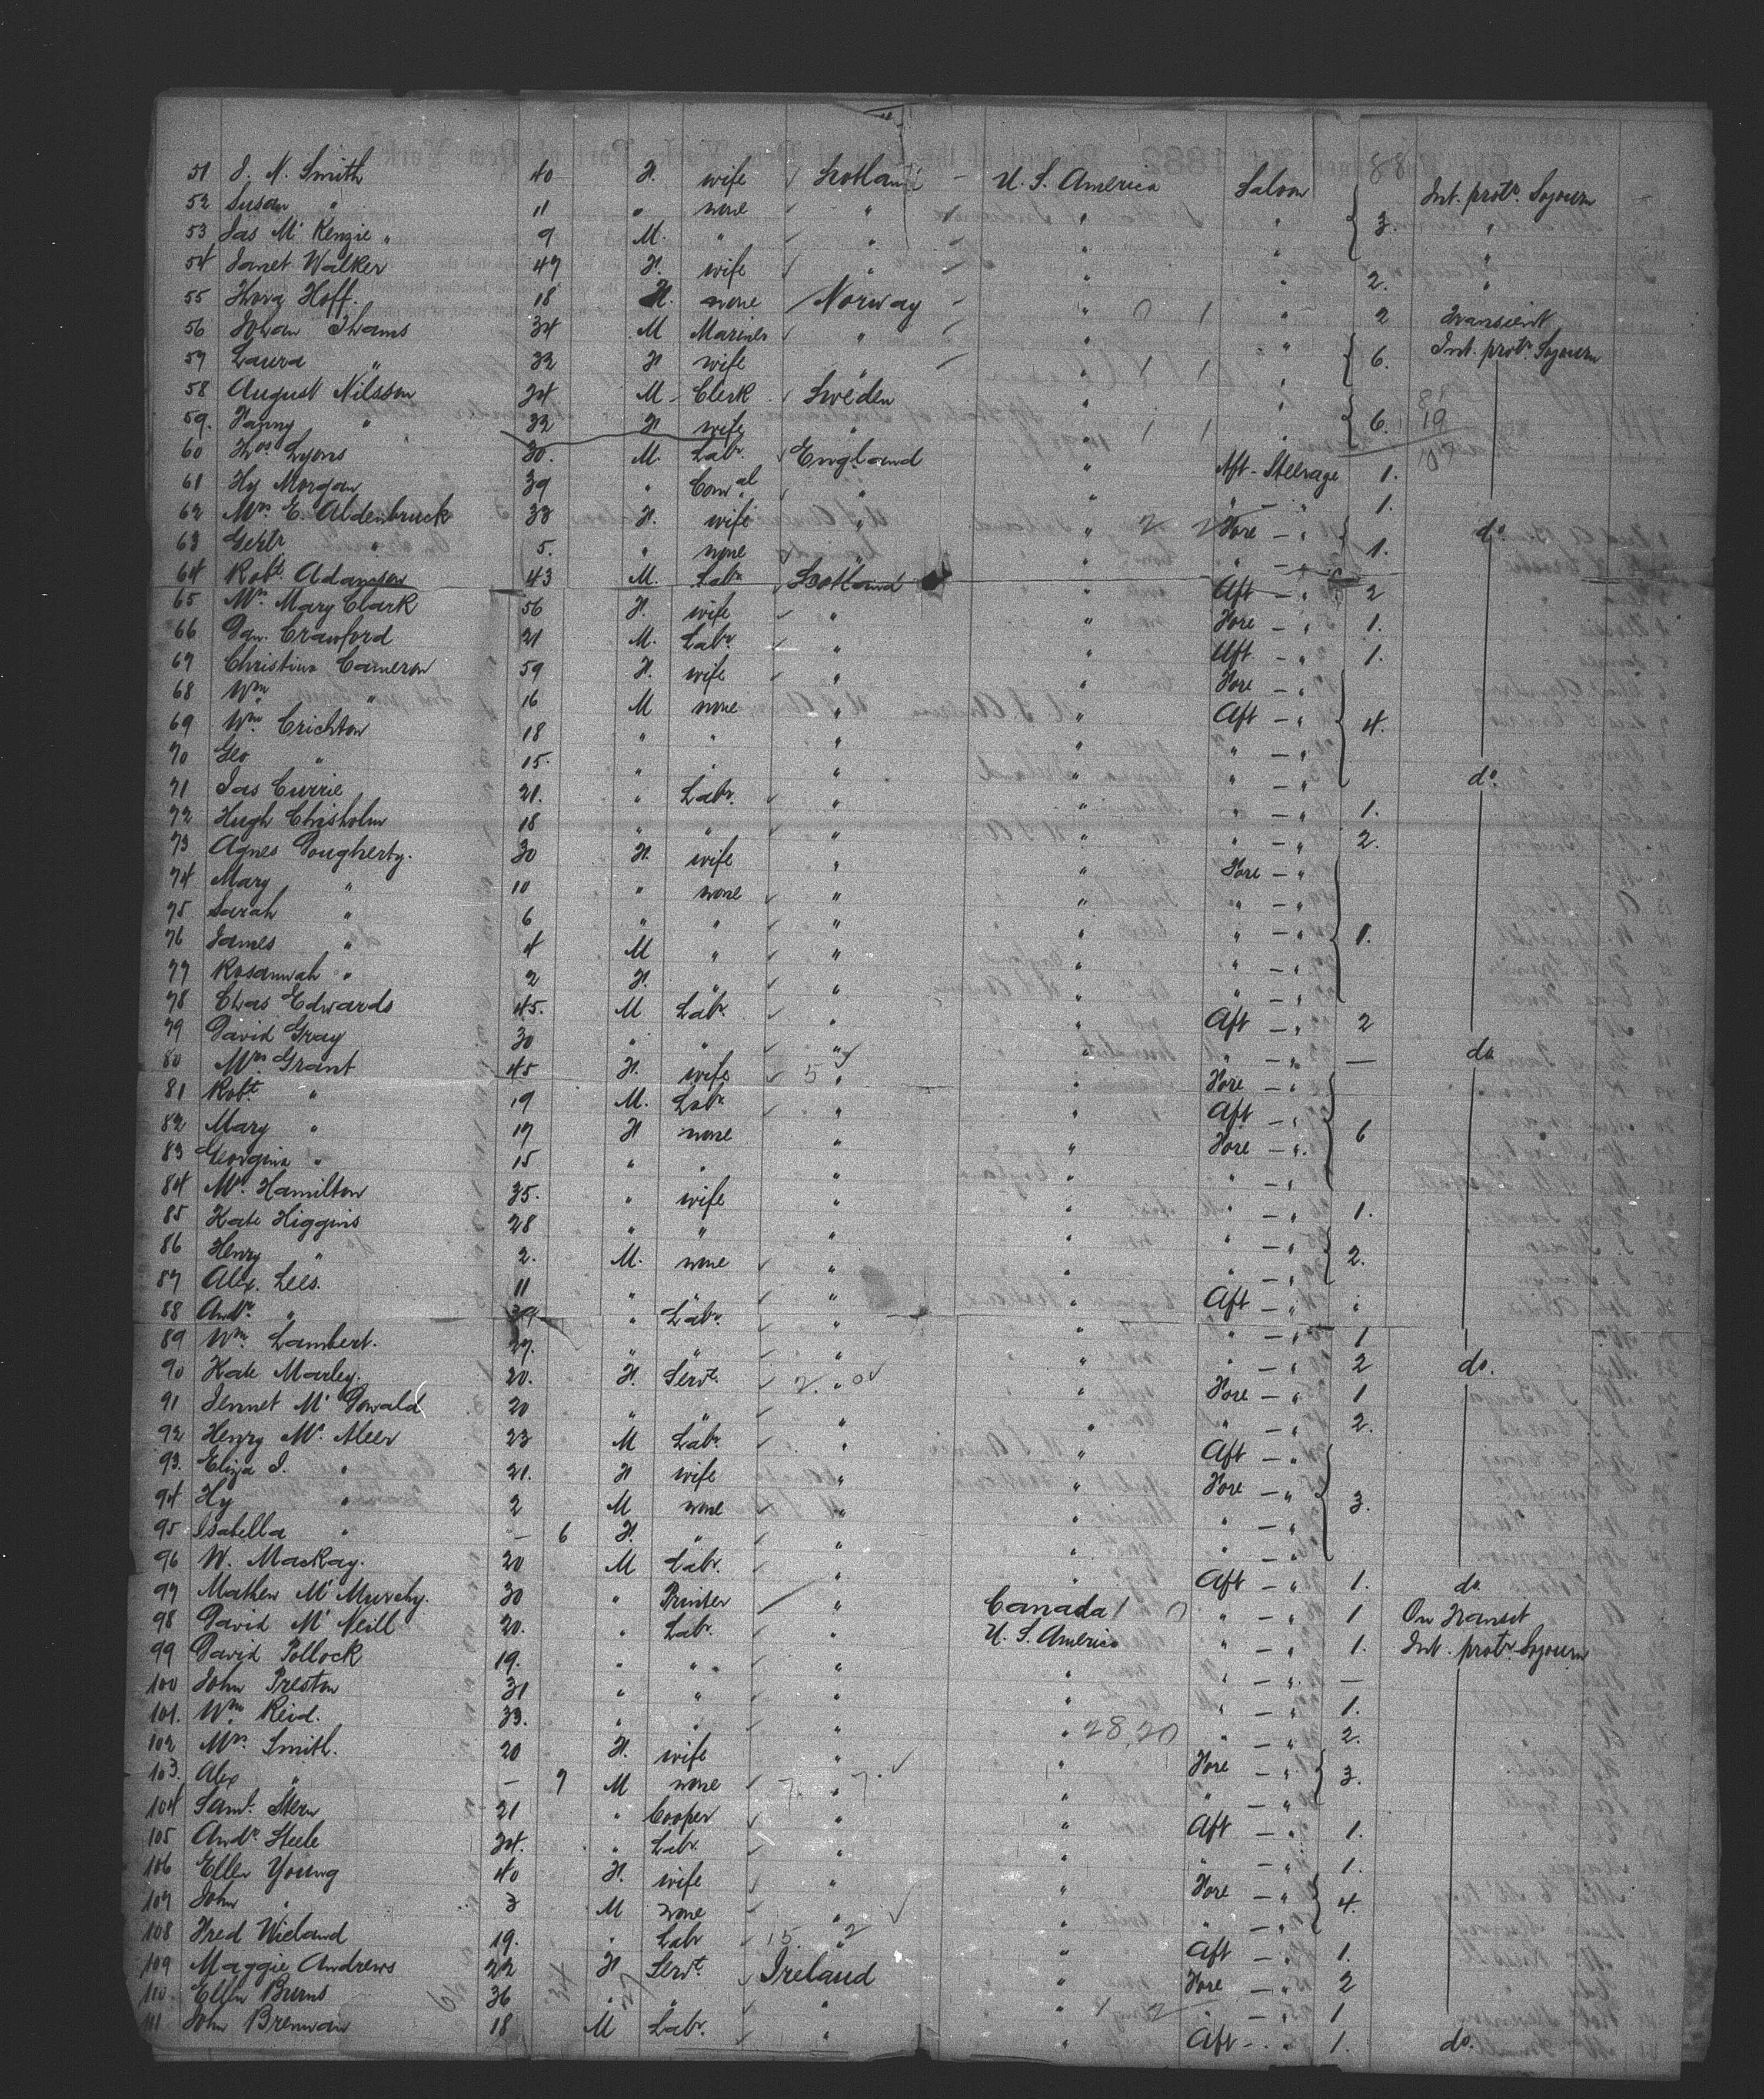 51 J. N. Smith 40 F. wife Scotland U. S. America Saloon Int. protr. Sojourn
52 Susan " 11 " none " " " 3. "
53 Jas Mc Kenzie " 9 M. " " " " "
54 Janet Walker 47 F. wife " " " 2. "
55 Thora Hoff. 18 F. none Norway " " 2 Transient
56 Johan Thams 34 M Mariner " " " Int. protr. Sojourn
57 Laura " 32 F wife " " " 6.
58 August Nilsson 34 M Clerk Sweden " "
59. Fanny " 32 F wife " " " 6. 19
60 Thos Lyons 30. M. Labr. England " Aft - Steerage 1.
61 Hy Morgan 39 " Comal " " " - " 1.
62 Mrs. E. Aldenbruck 33 F. wife " " Fore - " do.
63 Gertr " 5. " none " " " - " 1.
64 Robt. Adamson 43 M. Labr Scotland " Aft - " 2
65 Mrs. Mary Clark 56 F. wife " " Fore - " 1.
66 Daw. Crawford 21 M. Labr. " " Aft - " 1.
67 Christina Cameron 59 F. wife " " Fore - "
68 Wm " 16 M none " " Aft - " 4.
69 Wm Crichton 18 " " " " " - "
70 Geo " 15. " " " " " - " do.
71 Jas Currie 21. " Labr. " " " - " 1.
72 Hugh Chisholm 18 " " " " " - " 2.
73 Agnes Dougherty. 30 F. wife " " Fore - "
74 Mary " 10 " none " " " - "
75 Sarah " 6 " " " " " - " 1.
76 James " 4 M " " " " - "
77 Rosannah " 2 F. " " " " - "
78 Chas Edwards 45. M Labr. " " Aft - " 2
79 David Gray 30 " " " " " - " — do
80 Mrs Grant 45 F. wife " " Fore - "
81 Robt " 19 M. Labr. " " Aft - "
82 Mary " 17 F none " " Fore - " 6
83 Georgina " 15 " " " " " - "
84 Mrs. Hamilton 35. " wife " " " - " 1.
85 Kate Higgins 28 " " " " " - "
86 Henry " 2. M. none " " " - " 2.
87 Alex. Lees. 11 " " " " Aft - " "
88 Andw. " 39 " Labr. " " " - " 1
89 Wm. Lambert. 27. " " " " " - " 2 do.
90 Kate Marley. 20. F. Servt. " " Fore - " 1
91 Jennet Mc Donald 20 " " " " " 2.
92 Henry Mc. Aleer 23 M Labr. " " Aft - "
93. Eliza J. " 21. F wife " " Fore - "
94 Hy " 2 M none " " " - " 3.
95 Isabella " — 6 F. " " " " - "
96 W. Mackay. 20 M Labr. " " Aft - " 1. do.
97 Mathew Mc Murchy. 30 " Printer " Canada " - " 1 On Transit
98 David Mc Neill 20. " Labr. " U. S. America " - " 1. Int. protr. Sojourn
99 David Pollock 19. " " " " " - " —
100 John Preston 31 " " " " " - " 1.
101. Wm. Reid. 33. " " " " 28 20 " - " 2.
102 Mrs. Smith. 20 F. wife " " Fore - "
103. Alex " — 7 M none " " " - " 3.
104 Saml. Stern 21 " Cooper " " Aft - " 1.
105 Andr. Steele 34. " Labr. " " " - " 1.
106 Ellen Young 40 F. wife " " Fore - "
107 John " 3 M none " " " - " 4.
108 Fred Wieland 19. " Labr " " Aft - " 1.
109 Maggie Andrews 22 F Servt. Ireland " Fore - " 2
110. Ellen Burns 36 " " " " " 1
111 John Brennan 18 M Labr. " " Aft - " 1. do.